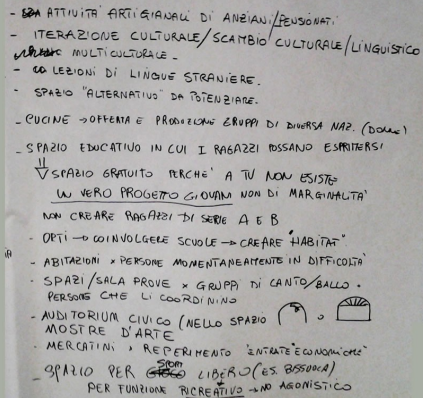 - ATTIVITÀ ARTIGIANALI DI ANZIANI/PENSIONATI
- ITERAZIONE CULTURALE/SCAMBIO CULTURALE/LINGUISTICO
MULTICULTURALE -
- LEZIONI DI LINGUE STRANIERE.
- SPAZIO "ALTERNATIVO" DA POTENZIARE.
- CUCINE → OFFERTA E PRODUZIONE GRUPPI DI DIVERSA NAZ. (DONNE)
- SPAZIO EDUCATIVO IN CUI I RAGAZZI POSSANO ESPRIMERSI
SPAZIO GRATUITO PERCHE' A TV NON ESISTE
UN VERO PROGETTO GIOVANI NON DI MARGINALITA'
NON CREARE RAGAZZI DI SERIE A E B
- OPTI → COINVOLGERE SCUOLE → CREARE "HABITAT"
- ABITAZIONI x PERSONE MOMENTANEAMENTE IN DIFFICOLTÀ
- SPAZI/SALA PROVE x GRUPPI DI CANTO/BALLO •
PERSONE CHE LI COORDININO
- AUDITORIUM CIVICO (NELLO SPAZIO o
MOSTRE D'ARTE
- MERCATINI x REPERIMENTO "ENTRATE" ECONOMICHE"
- SPAZIO PER SPORT LIBERO (ES. BISSUOLA)
PER FUNZIONE RICREATIVO → NO AGONISTICO